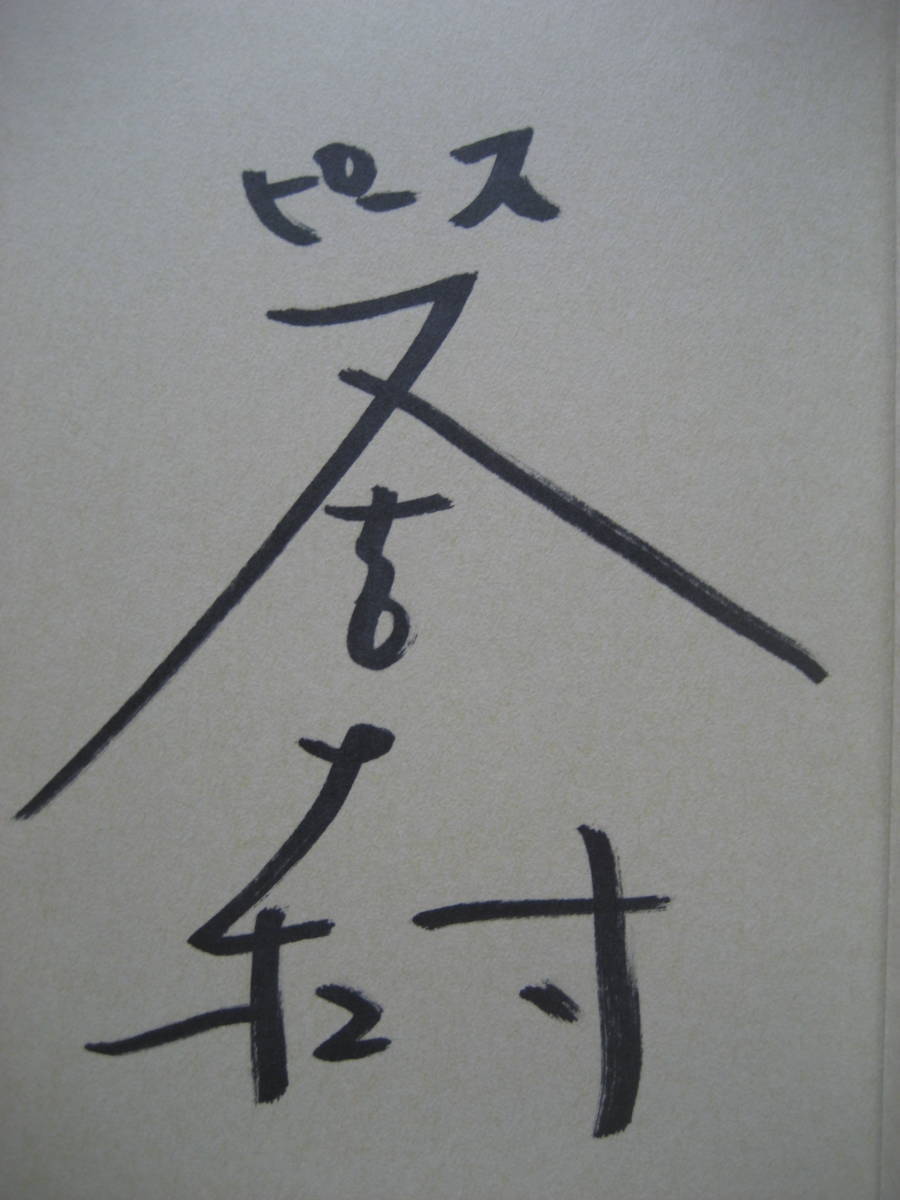 ピース
又吉
直樹